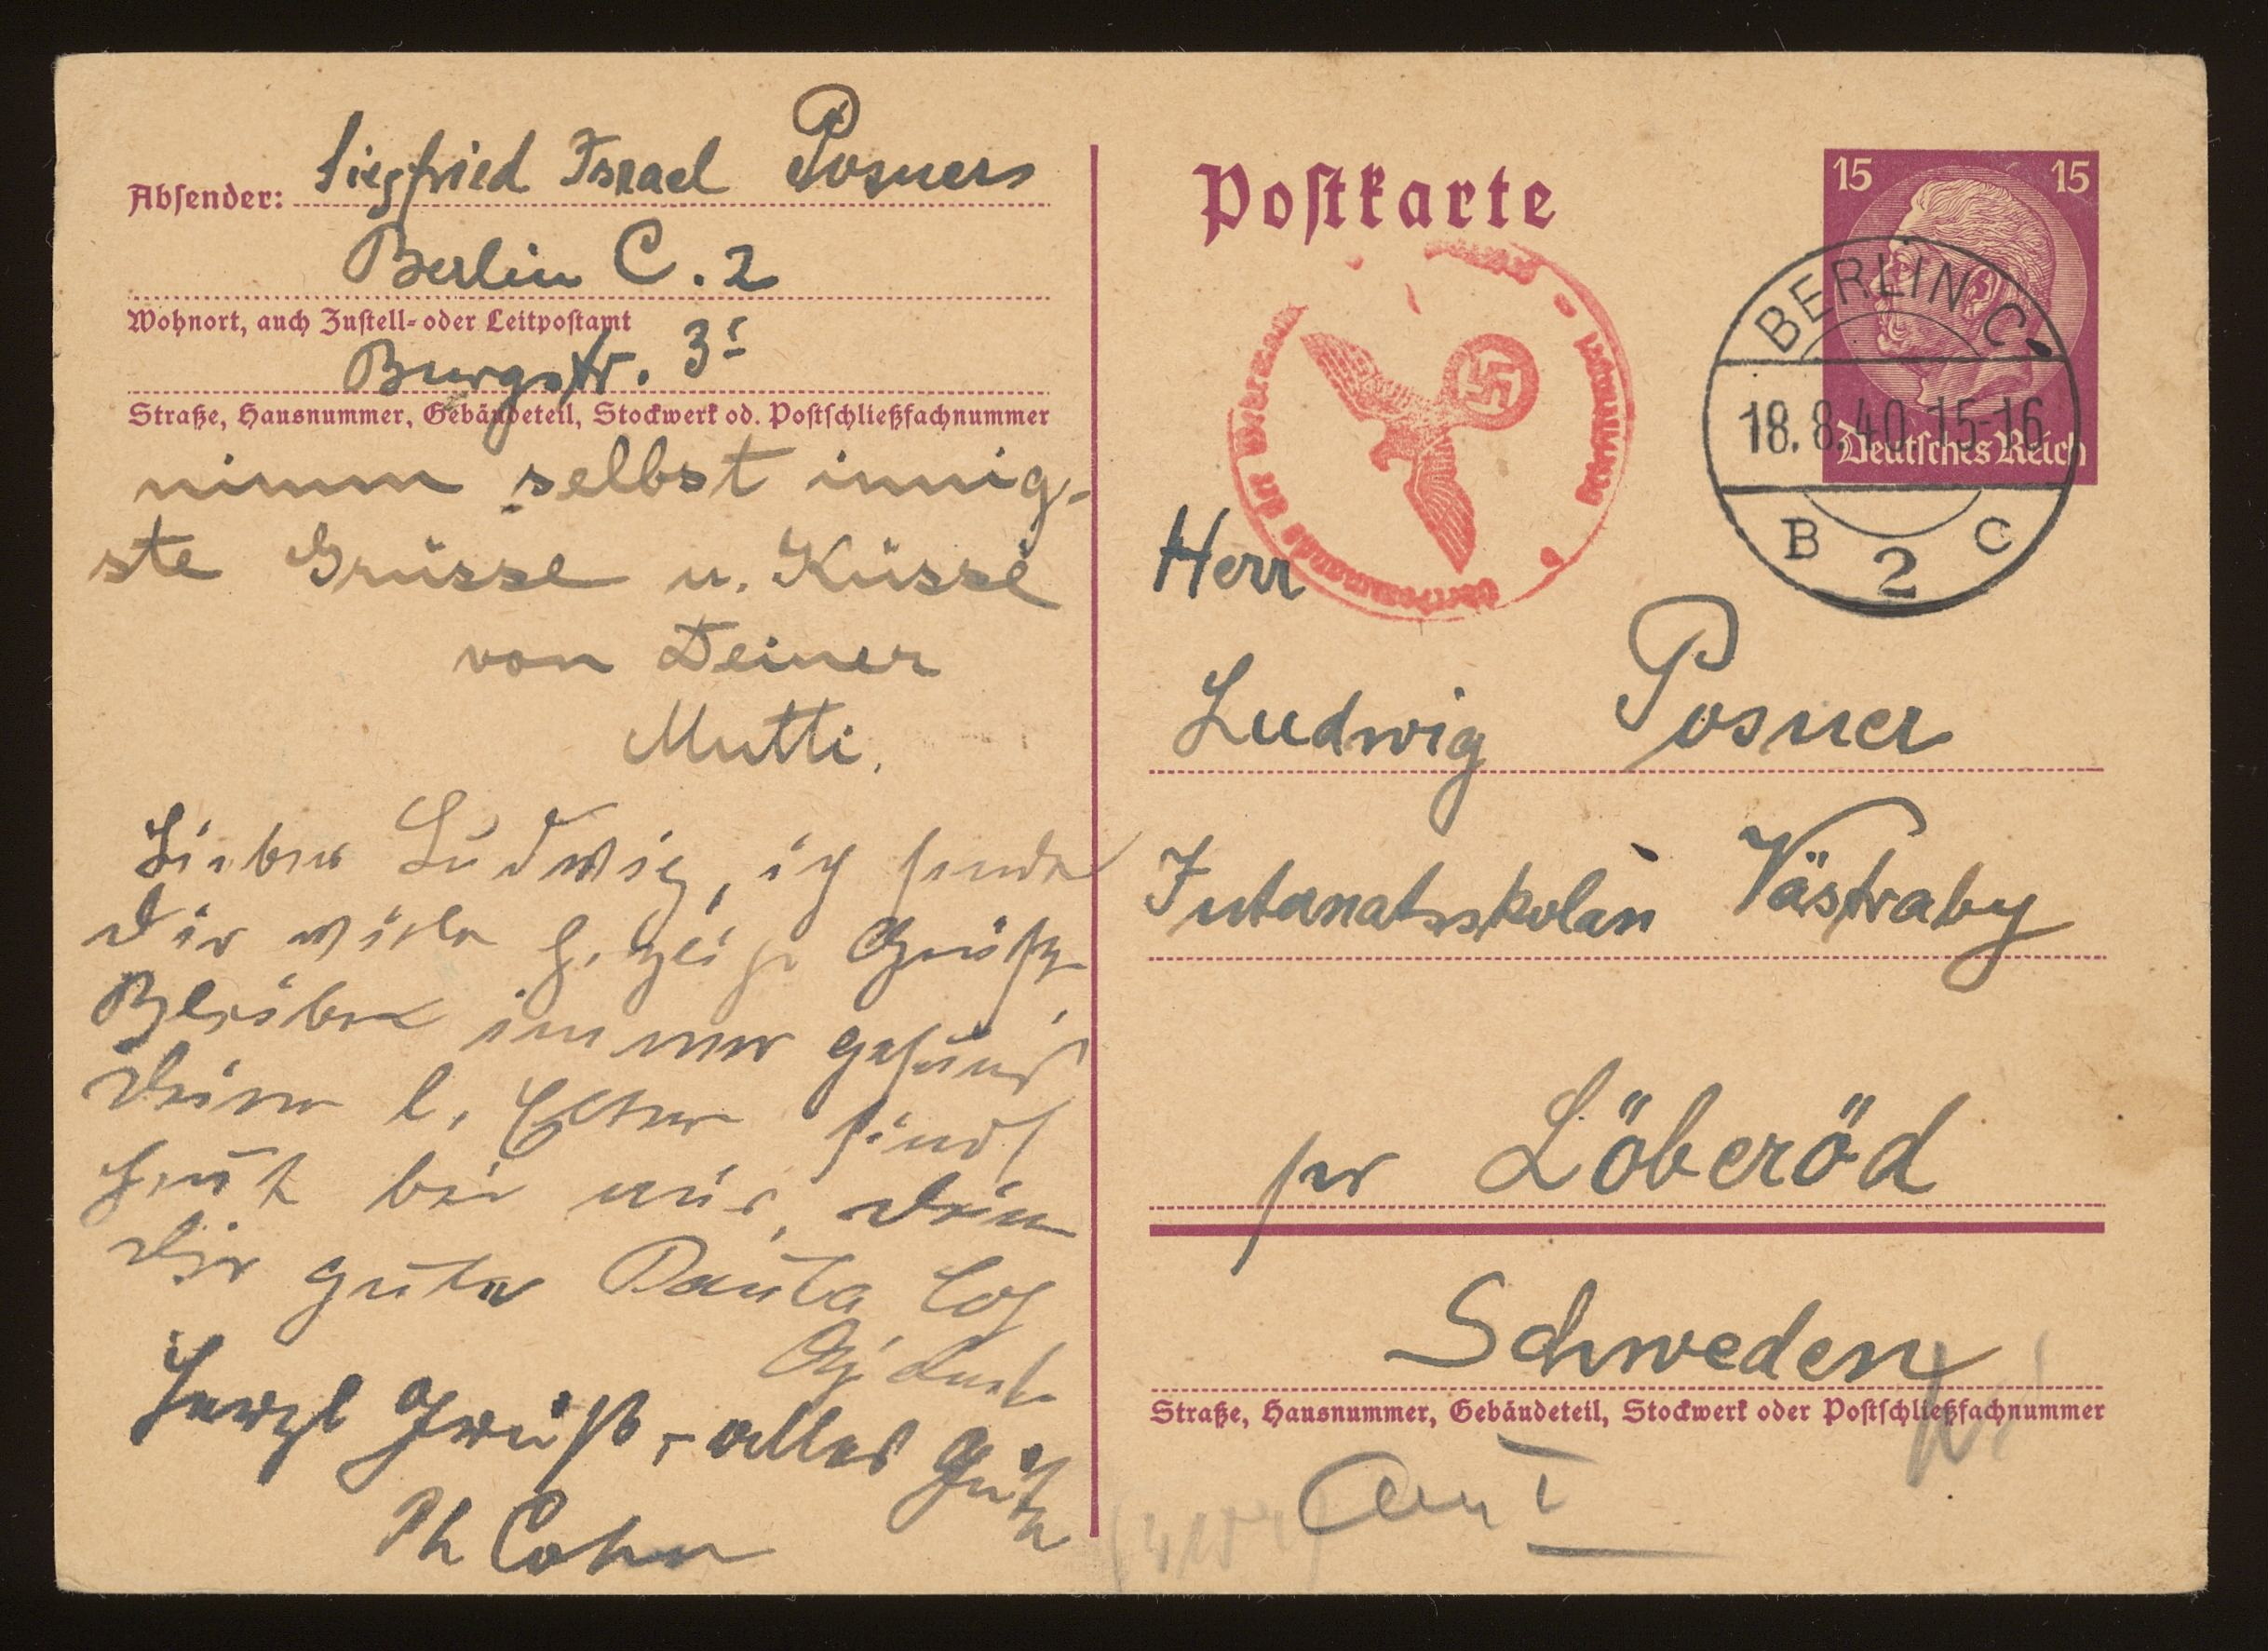 Absender: Siegfried Israel Posner
Berlin C. 2
Wohnort, auch Zustell- oder Leitpostamt
Burgstr.
Straße, Hausnummer, Gebäudeteil, Stockwerk od. Postschließfachnummer
nimm selbst innig-
ste Grüsse u. Küsse
von Deiner
Mutti.
Lieber Ludwig, ich sende
Dir viele Grüße
Bleibe immer gesund
Deine l. Eltern sind
heut bei mir,
Dir gute
Herzl Gruß, alles Gute
Ph Cohn
Postkarte
15 15
Deutsches Reich
BERLIN C
18.8.40.15-16
B 2 C
Oberkommando der Wehrmacht
Herr
Ludwig Posner
Internatsskolan Västraby
per Löberöd
Schweden
Straße, Hausnummer, Gebäudeteil, Stockwerk oder Postschließfachnummer